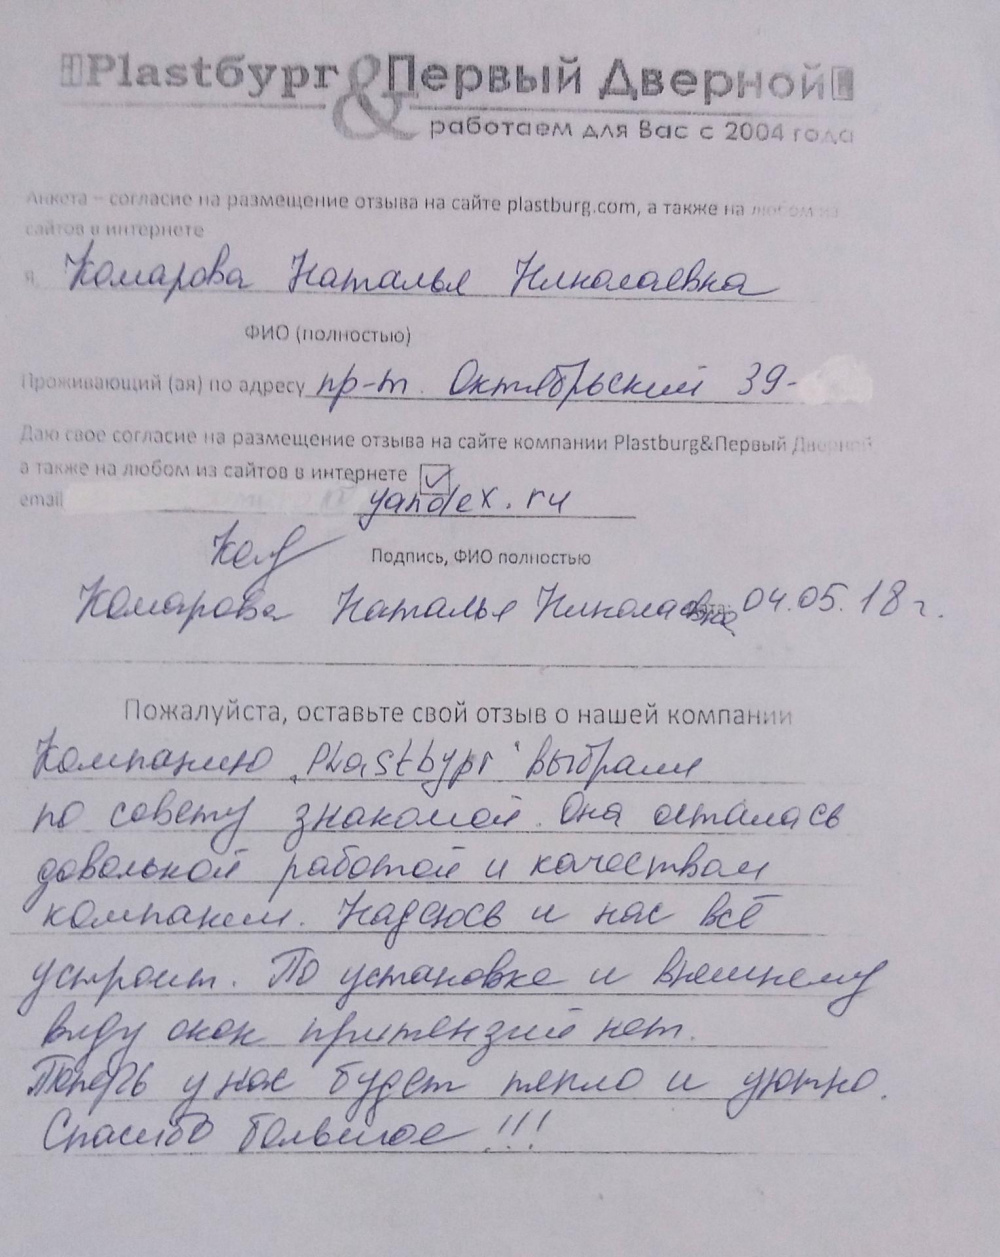 Plastбург & Первый Дверной
работаем для Вас с 2004 года
Анкета – согласие на размещение отзыва на сайте plastburg.com, а также на любом из
сайтов в интернете
я, Комарова Наталья Николаевна
ФИО (полностью)
Проживающий (ая) по адресу пр-т. Октябрьский 39-
Даю свое согласие на размещение отзыва на сайте компании Plastburg&Первый Дверной,
а также на любом из сайтов в интернете ☑
email yandex.ru
Подпись, ФИО полностью
Комарова Наталья Николаевна дата: 04.05.18 г.
Пожалуйста, оставьте свой отзыв о нашей компании
Компанию "Plastбург" выбрали
по совету знакомой. Она осталась
довольной работой и качеством
компании. Надеюсь и нас всё
устроит. По установке и внешнему
виду окон притензий нет.
Теперь у нас будет тепло и уютно.
Спасибо большое!!!